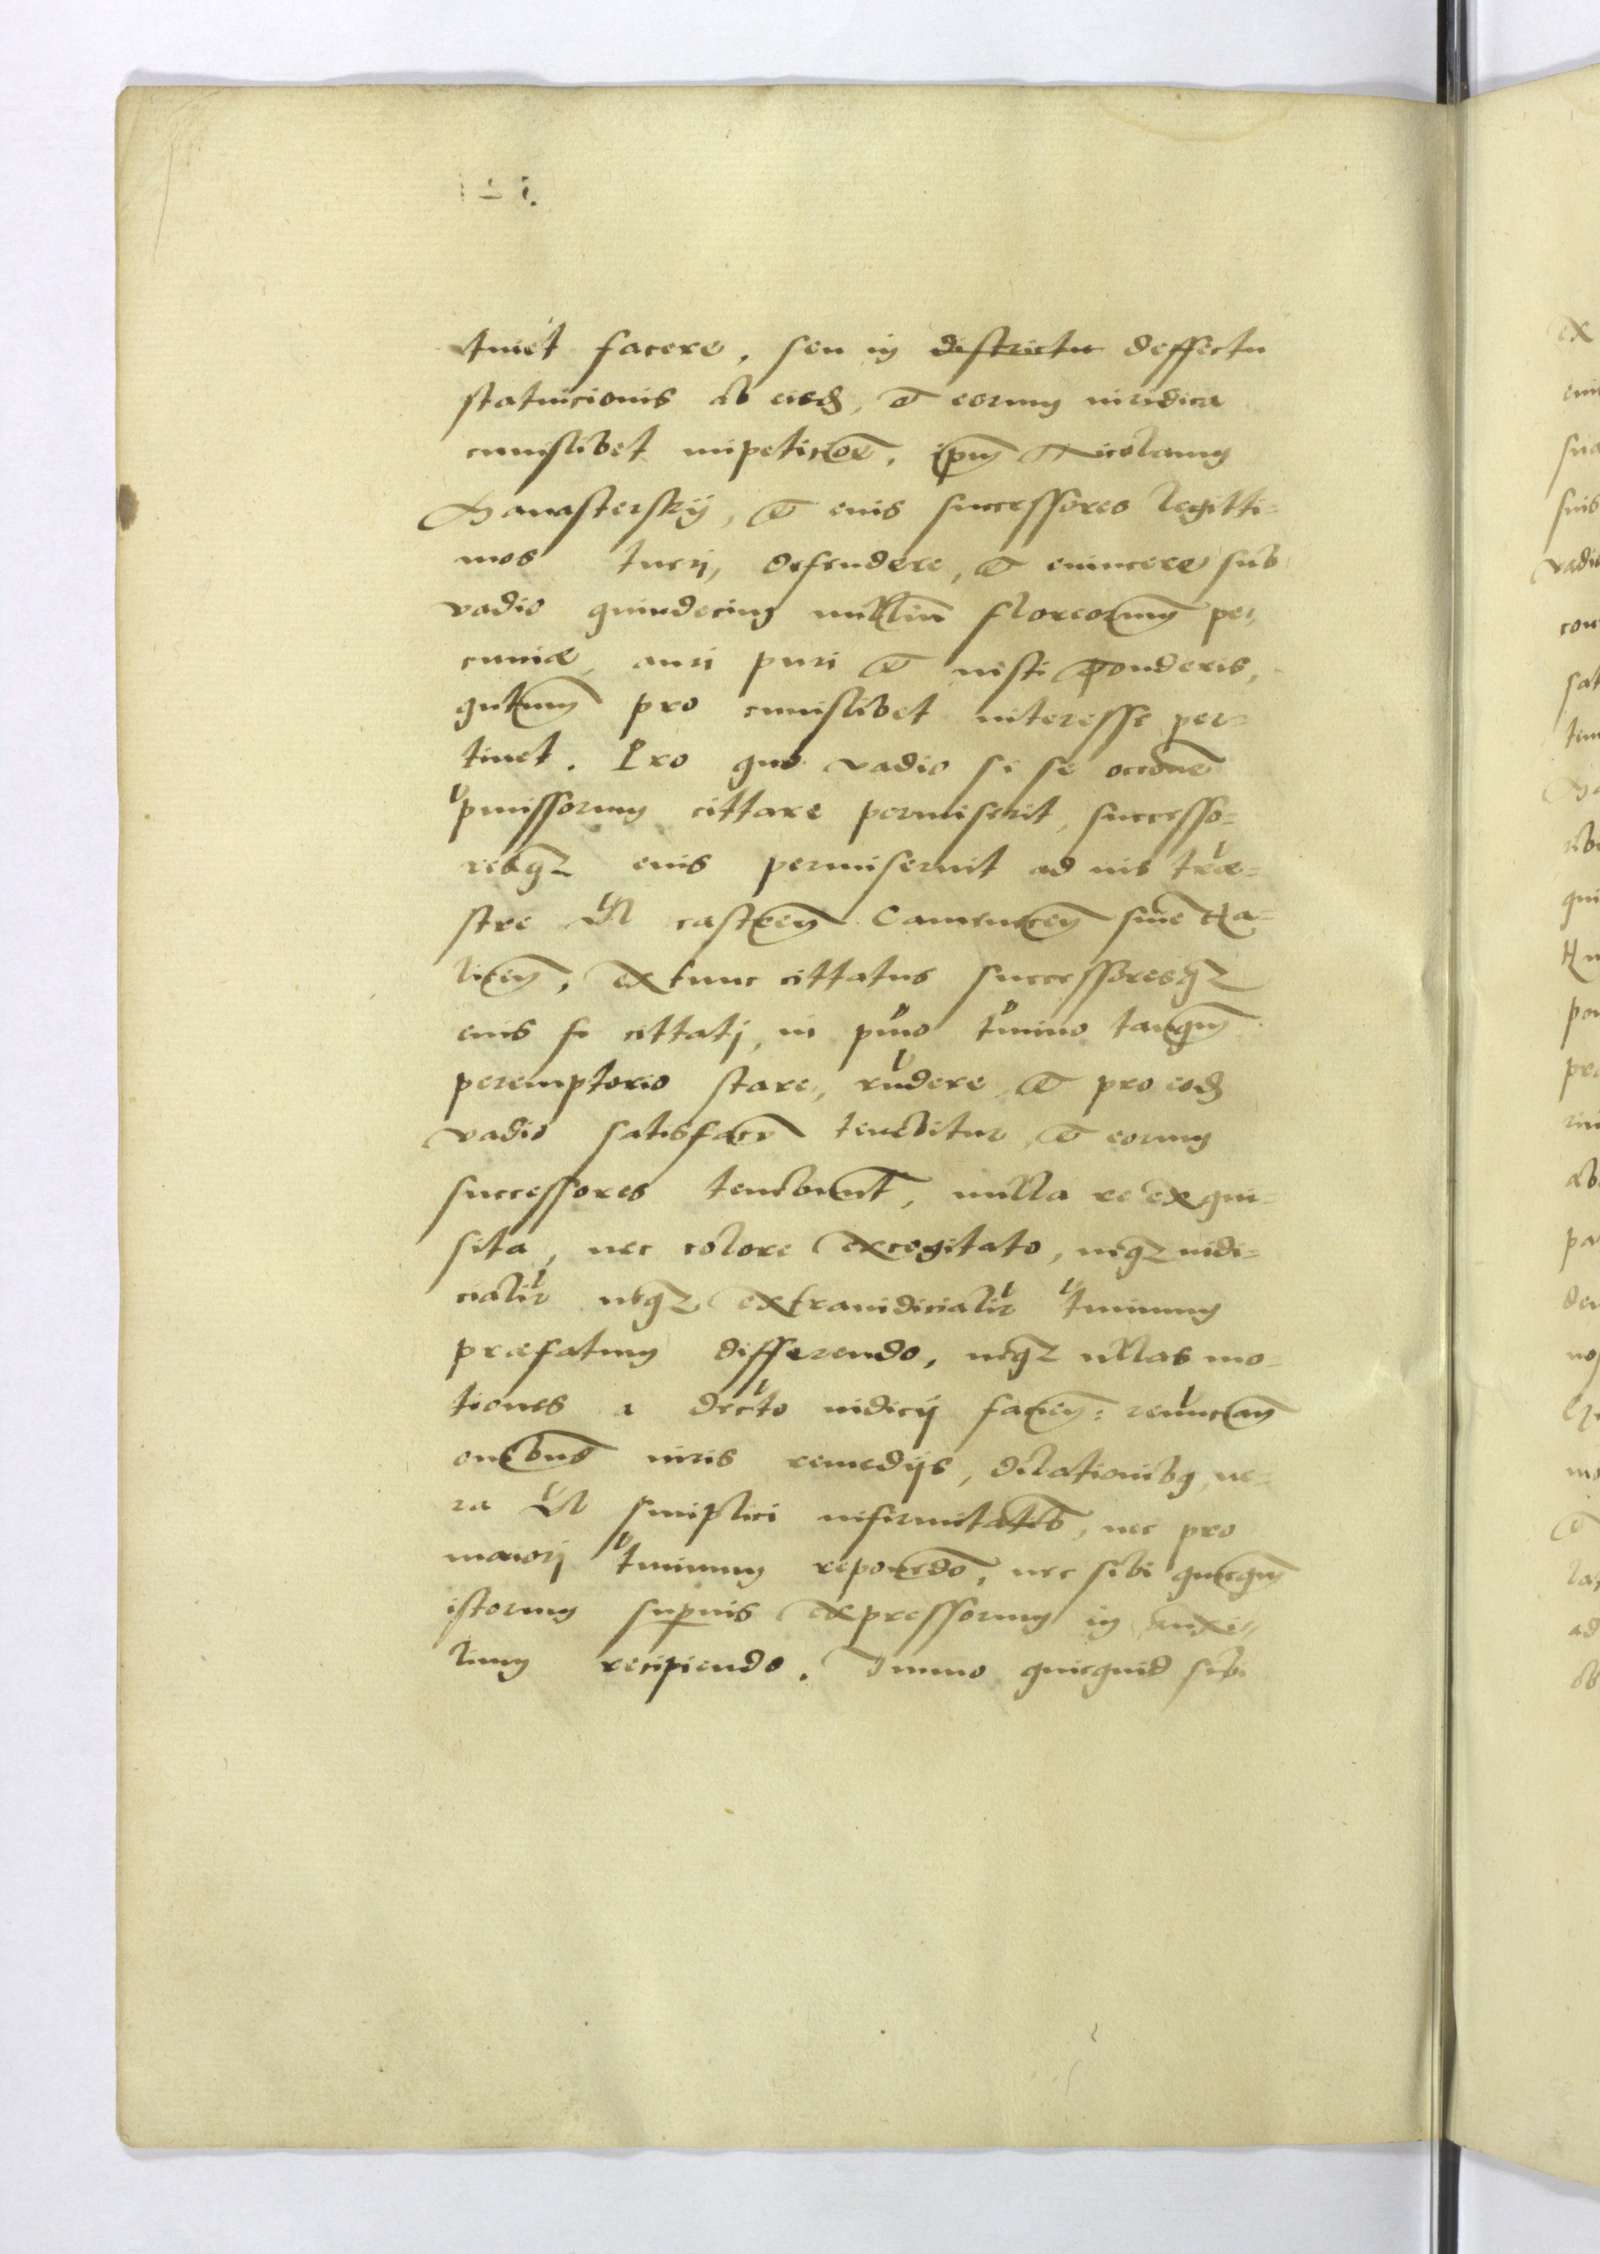 tniet facere, seu in districtu deffectu
statuicionis ab eisd, et eorum iuridica
cuiuslibet impeticoe, ipm Nicolaum
Hanasterskÿ, et eius successores legitti-
mos tueri, defendere, et euincere sub
vadio quindecim milliu floreorum pe-
cuniæ, auri puri et iusti ponderis,
qutum pro cuiuslibet interesse per-
tinet. Pro quo vadio si se occone
pmissorum cittare permiserit, successo-
resqz eius permiserint ad ius trre-
stre vl castren Camenecen siue Ha-
licien, extunc cittatus successoresqz
eius sic cittati, in pmo tmino tanqm
peremptorio stare, rndere et pro eod
vadio satisfacre tenebitur et eorum
successores tenebunt, nulla re exqui-
sita, nec colore excogitato, neqz iudi-
cialir neqz extraiudicialir tminum
præfatum differendo, neqz ullas mo-
tiones a decrto iudicij facien: renuncian
onibus iuris remedijs, dilationibq, ue-
ra vl simplici infirmitatis, nec pro
maiori tminum reponedo, nec sibi quicqm
istorum superius expressorum in auxi-
lium recipiendo. Immo quicquid sibi